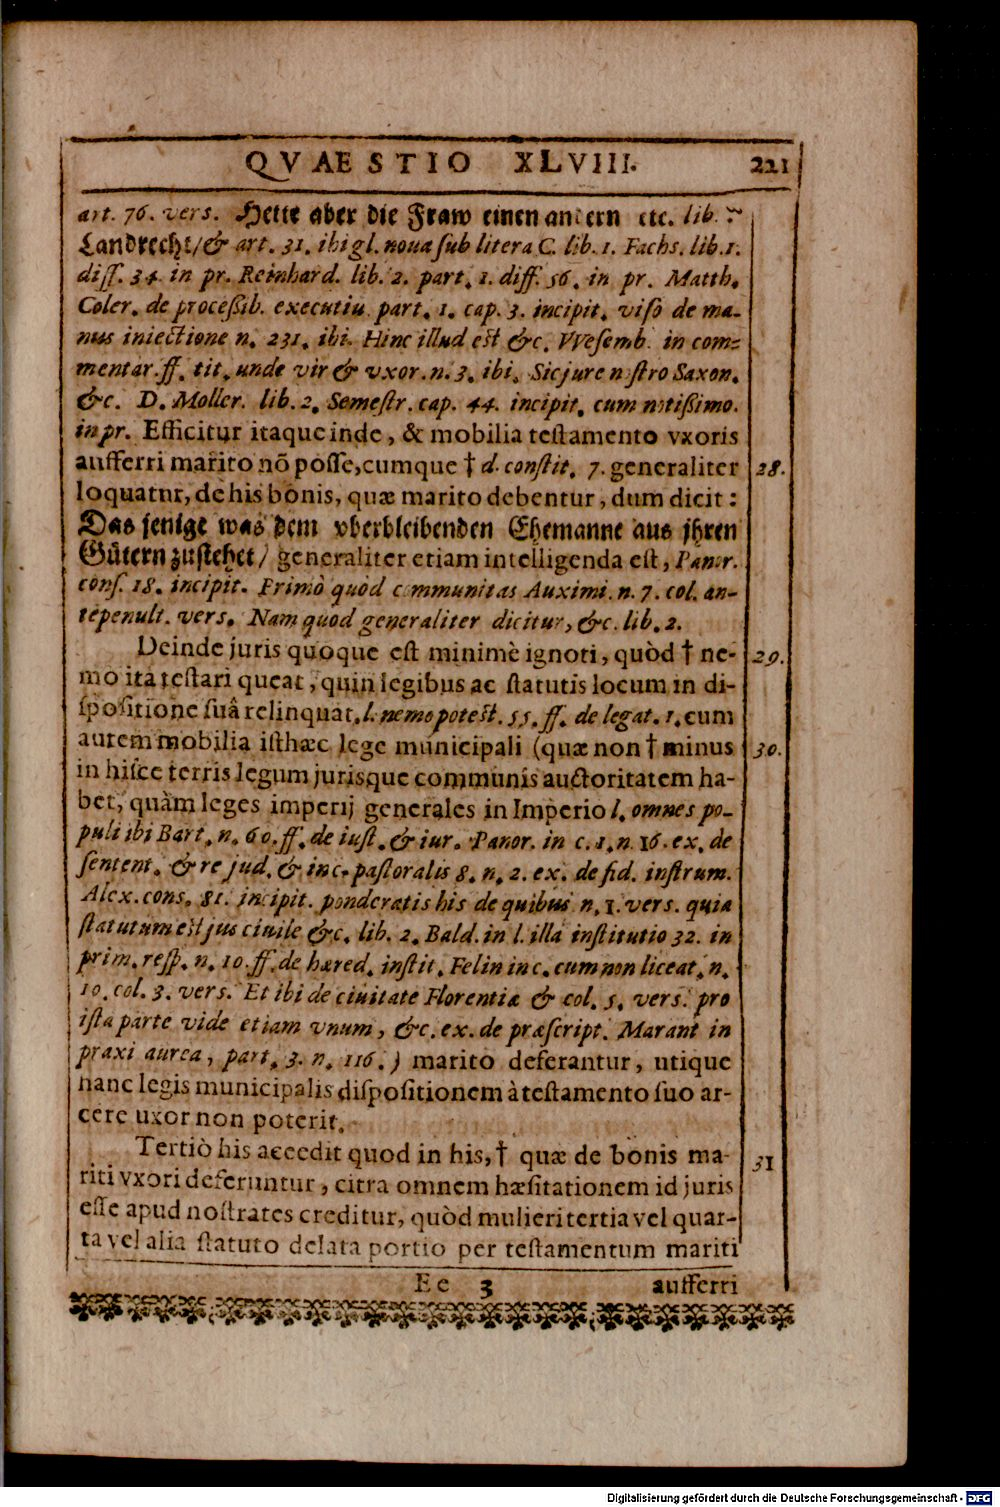 QVAESTIO XLVIII. 221
art. 76. vers. Hette aber die Fraw einen andern etc. lib. 1.
Landrecht/& art. 31. ibi gl. noua sub litera C. lib. 1. Fachs. lib. 1.
diff. 34. in pr. Reinhard. lib. 2. part. 1. diff. 56. in pr. Matth.
Coler. de proceßib. executiu. part. 1. cap. 3. incipit. viso de ma-
nus iniectione n. 231. ibi. Hinc illud est &c. VVesemb. in com-
mentar. ff. tit. unde vir & vxor. n. 3. ibi. Sic jure nostro Saxon.
&c. D. Moller. lib. 2. Semestr. cap. 44. incipit. cum notißimo.
in pr. Efficitur itaque inde, & mobilia testamento vxoris
aufferri marito nõ posse, cumque † d. constit. 7. generaliter 28.
loquatur, de his bonis, quæ marito debentur, dum dicit:
Das jenige was dem vberbleibenden Ehemanne aus jhren
Gütern zustehet/ generaliter etiam intelligenda est, Panor.
cons. 18. incipit. Primò quòd communitas Auximi. n. 7. col. an-
tepenult. vers. Nam quod generaliter dicitur, &c. lib. 2.
Deinde juris quoque est minimè ignoti, quòd † ne- 29.
mo ita testari queat, quin legibus ac statutis locum in di-
spositione suâ relinquat. l. nemo potest. 55. ff. de legat. 1. cum
autem mobilia isthæc lege municipali (quæ non † minus 30.
in hisce terris legum jurisque communis auctoritatem ha-
bet, quàm leges imperij generales in Imperio l. omnes po-
puli ibi Bart. n. 60. ff. de iust. & iur. Panor. in c. 1. n. 16. ex. de
sentent. & re jud. & in c. pastoralis 8. n. 2. ex. de fid. instrum.
Alex. cons. 81. incipit. ponderatis his de quibus n. 1. vers. quia
statutum est jus ciuile &c. lib. 2. Bald. in l. illa institutio 32. in
prim. resp. n. 10. ff. de hæred. instit. Felin in c. cum non liceat. n.
10. col. 3. vers. Et ibi de ciuitate Florentiæ & col. 5. vers. pro
ista parte vide etiam vnum, &c. ex. de præscript. Marant in
praxi aurea, part. 3. n. 116.) marito deferantur, utique
hanc legis municipalis dispositionem à testamento suo ar-
cere uxor non poterit.
Tertiò his accedit quod in his, † quæ de bonis ma- 31
riti vxori deferuntur, citra omnem hæsitationem id juris
esse apud nostrates creditur, quòd mulieri tertia vel quar-
ta vel alia statuto delata portio per testamentum mariti
Ee 3 aufferri
Digitalisierung gefördert durch die Deutsche Forschungsgemeinschaft - DFG